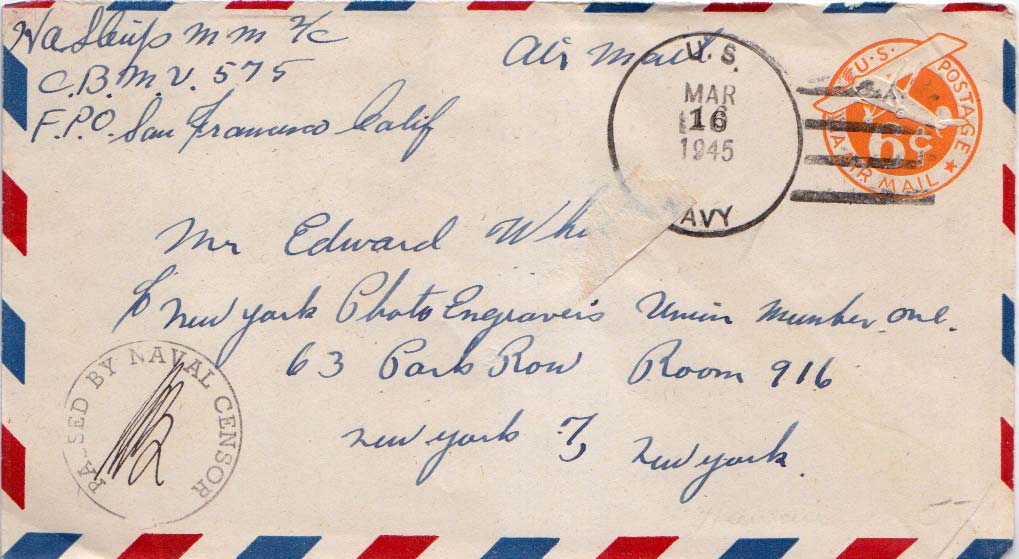 M M 2/c
C.B.M.U. 575
F.P.O. San Francisco Calif
Air Mail
U.S.
MAR
16
1945
AVY
U.S. POSTAGE
6c
VIA AIR MAIL
Mr Edward Whi
c/o New York Photo Engravers Union Number one.
63 Park Row Room 916
New York 7, New York.
PASSED BY NAVAL CENSOR